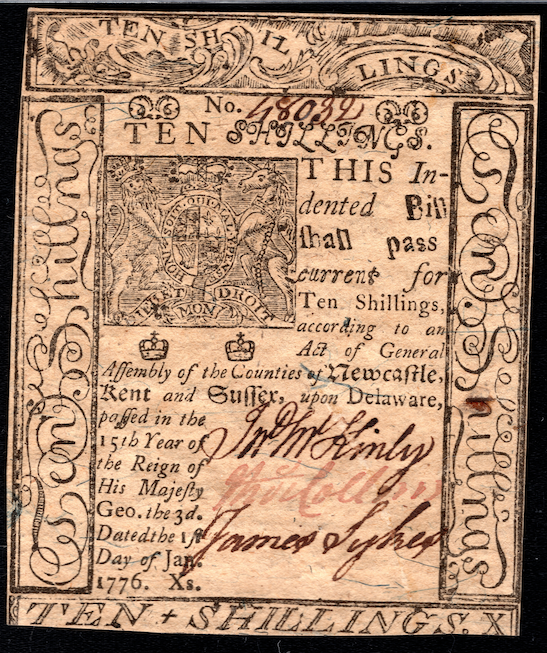 TEN SHIL
LINGS
No. 48032
TEN SHILLINGS.
THIS In-
dented Bill
shall pass
current for
Ten Shillings,
according to an
Act of General
Assembly of the Counties of Newcastle,
Kent and Sussex, upon Delaware,
passed in the
15th Year of
the Reign of
His Majesty
Geo. the 3d.
Dated the 1st
Day of Jan.
1776. Xs.
HONI SOIT QUI MAL Y PENSE
DIEU ET MON DROIT
Jno McKinly
Thos Collins
James Sykes
Ten Shillings
Ten Shillings
TEN + SHILLINGS. X